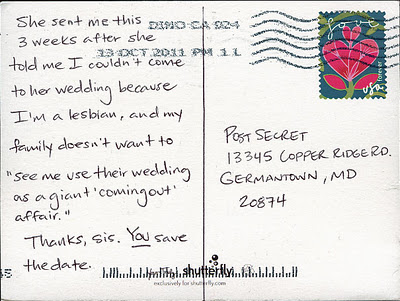 She sent me this
3 weeks after she
told me I couldn't come
to her wedding because
I'm a lesbian, and my
family doesn't want to
"see me use their wedding
as a giant 'coming out'
affair."
Thanks, sis. You save
the date.
DINO CA 924
13 OCT 2011 PM 1 L
love
forever
usa
POST SECRET
13345 COPPER RIDGE RD.
GERMANTOWN, MD
20874
shutterfly
exclusively for shutterfly.com